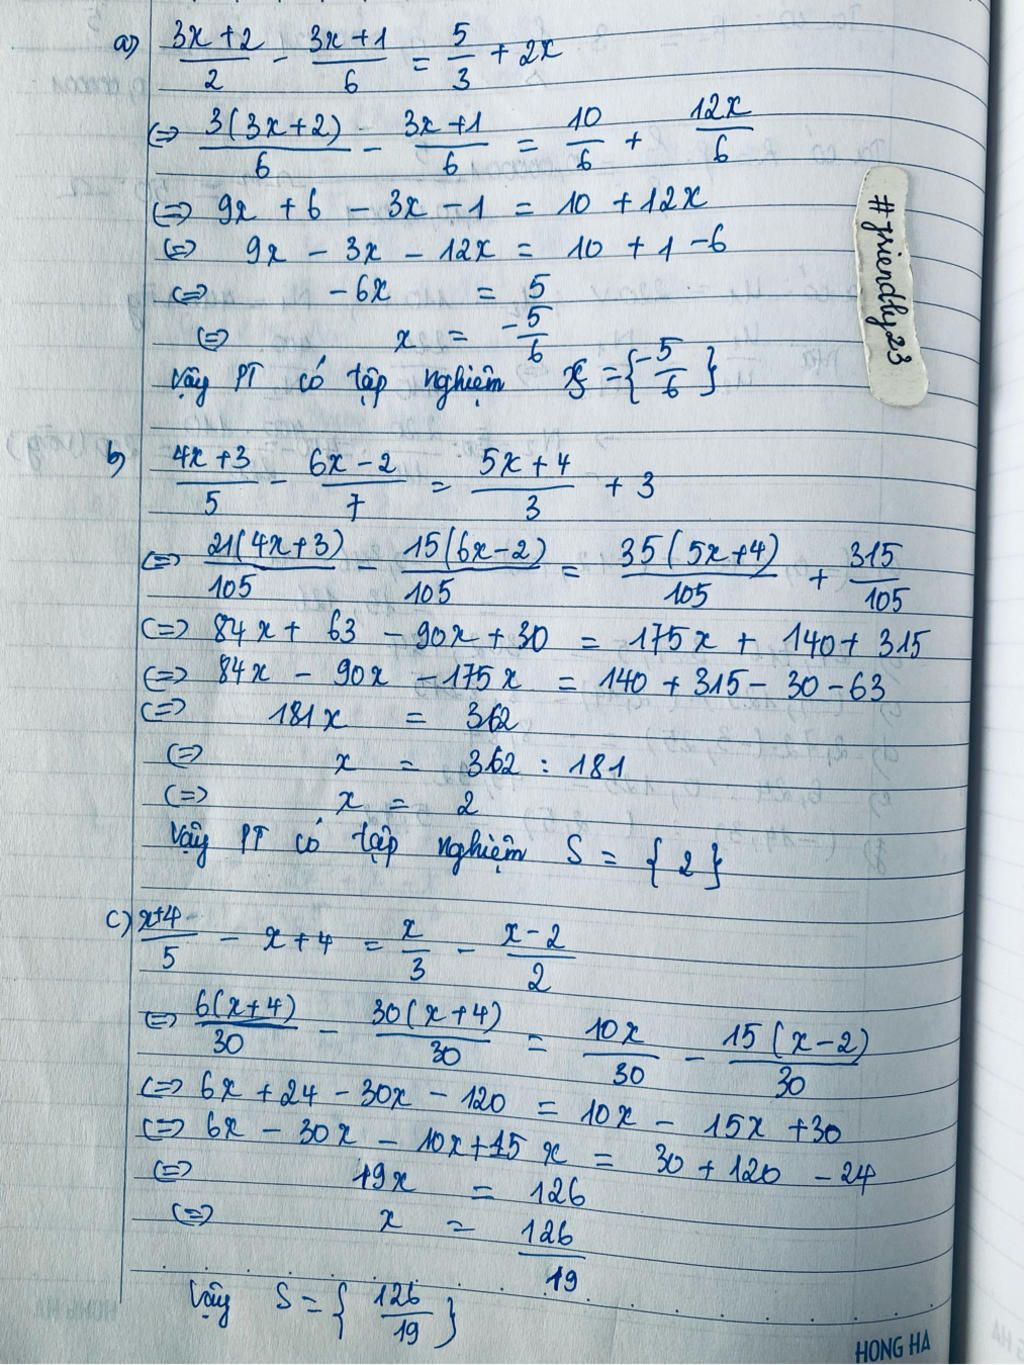 a) (3x+2)/2 - (3x+1)/6 = 5/3 + 2x
<=> 3(3x+2)/6 - (3x+1)/6 = 10/6 + 12x/6
<=> 9x + 6 - 3x - 1 = 10 + 12x
<=> 9x - 3x - 12x = 10 + 1 - 6
<=> -6x = 5
<=> x = -5/6
Vậy PT có tập nghiệm S = {-5/6}
b) (4x+3)/5 - (6x-2)/7 = (5x+4)/3 + 3
<=> 21(4x+3)/105 - 15(6x-2)/105 = 35(5x+4)/105 + 315/105
<=> 84x + 63 - 90x + 30 = 175x + 140 + 315
<=> 84x - 90x - 175x = 140 + 315 - 30 - 63
<=> 181x = 362
<=> x = 362 : 181
<=> x = 2
Vậy PT có tập nghiệm S = {2}
c) (x+4)/5 - x + 4 = x/3 - (x-2)/2
<=> 6(x+4)/30 - 30(x+4)/30 = 10x/30 - 15(x-2)/30
<=> 6x + 24 - 30x - 120 = 10x - 15x + 30
<=> 6x - 30x - 10x + 15x = 30 + 120 - 24
<=> 19x = 126
<=> x = 126/19
Vậy S = {126/19}
#friendly23
HONG HA